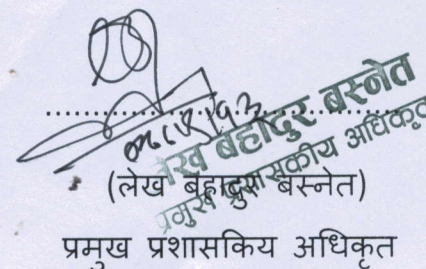 लेख बहादुर बस्नेत
प्रमुख प्रशासकीय अधिकृत
(लेख बहादुर बस्नेत)
प्रमुख प्रशासकिय अधिकृत